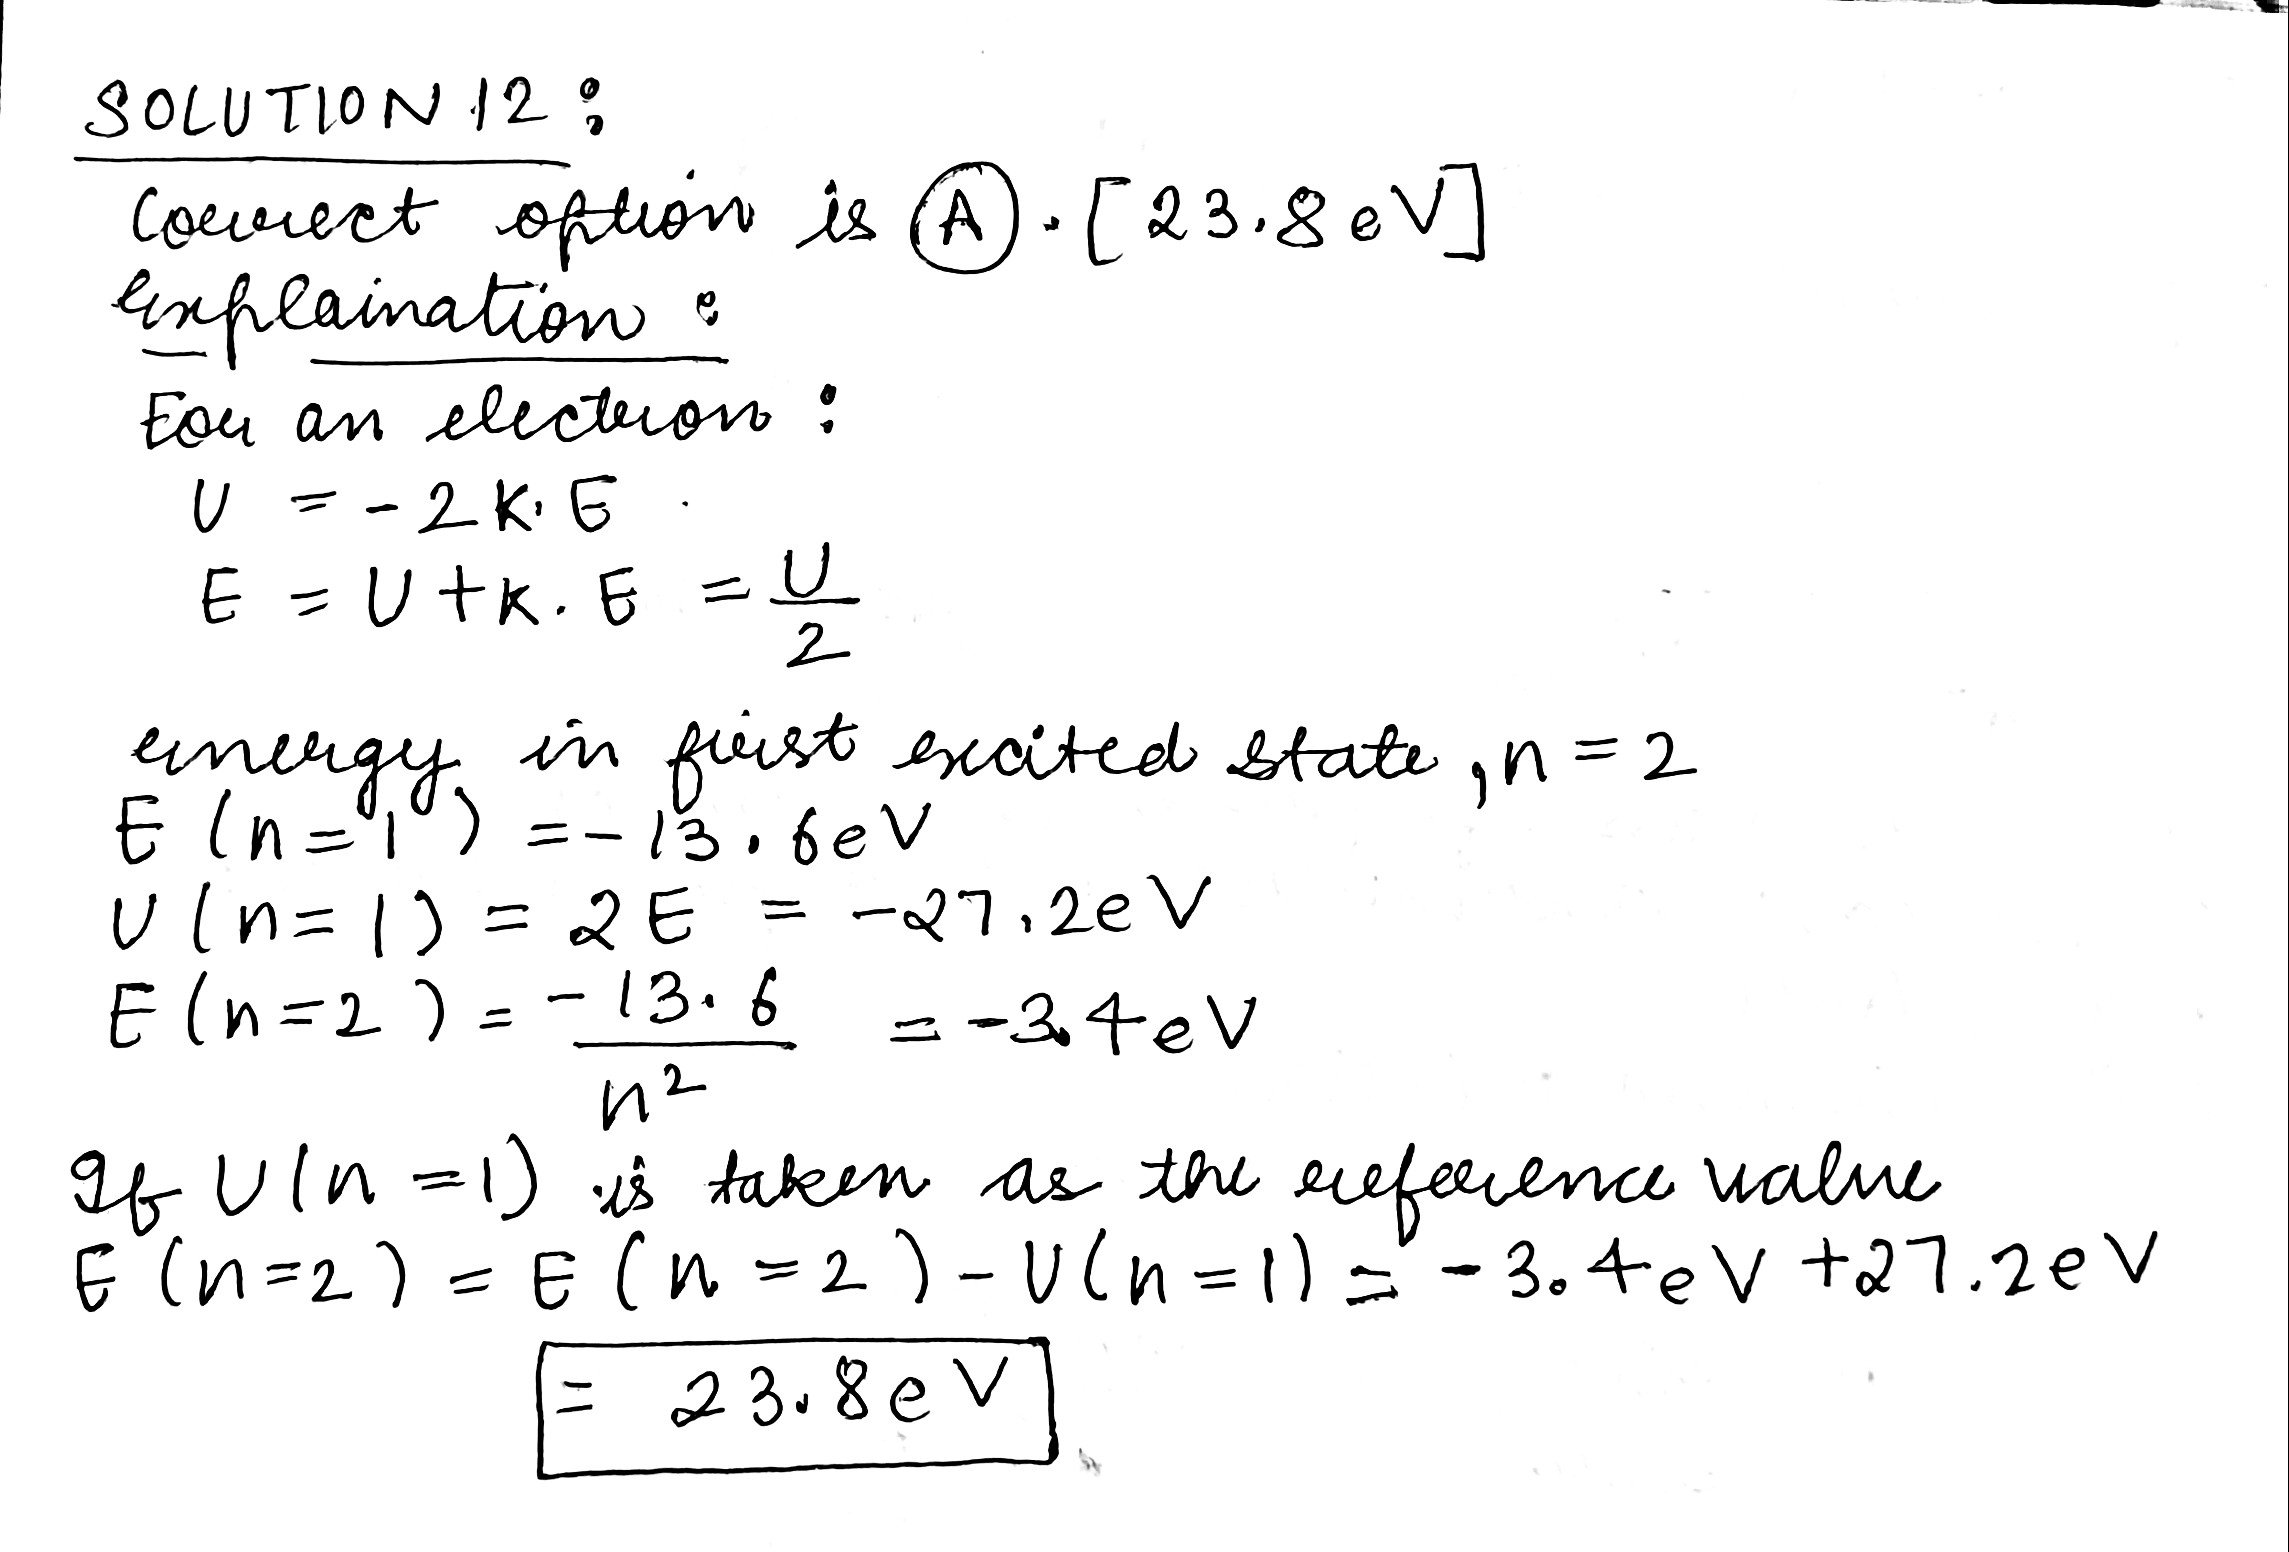 SOLUTION 12 :
Correct option is (A). [23.8 eV]
explaination :
For an electron :
U = -2K.E
E = U + K.E = U/2
energy in first excited state, n = 2
E (n=1) = -13.6eV
U (n=1) = 2E = -27.2eV
E (n=2) = -13.6/n² = -3.4eV
If U(n=1) is taken as the reference value
E (n=2) = E (n=2) - U(n=1) = -3.4eV + 27.2eV
= 23.8eV